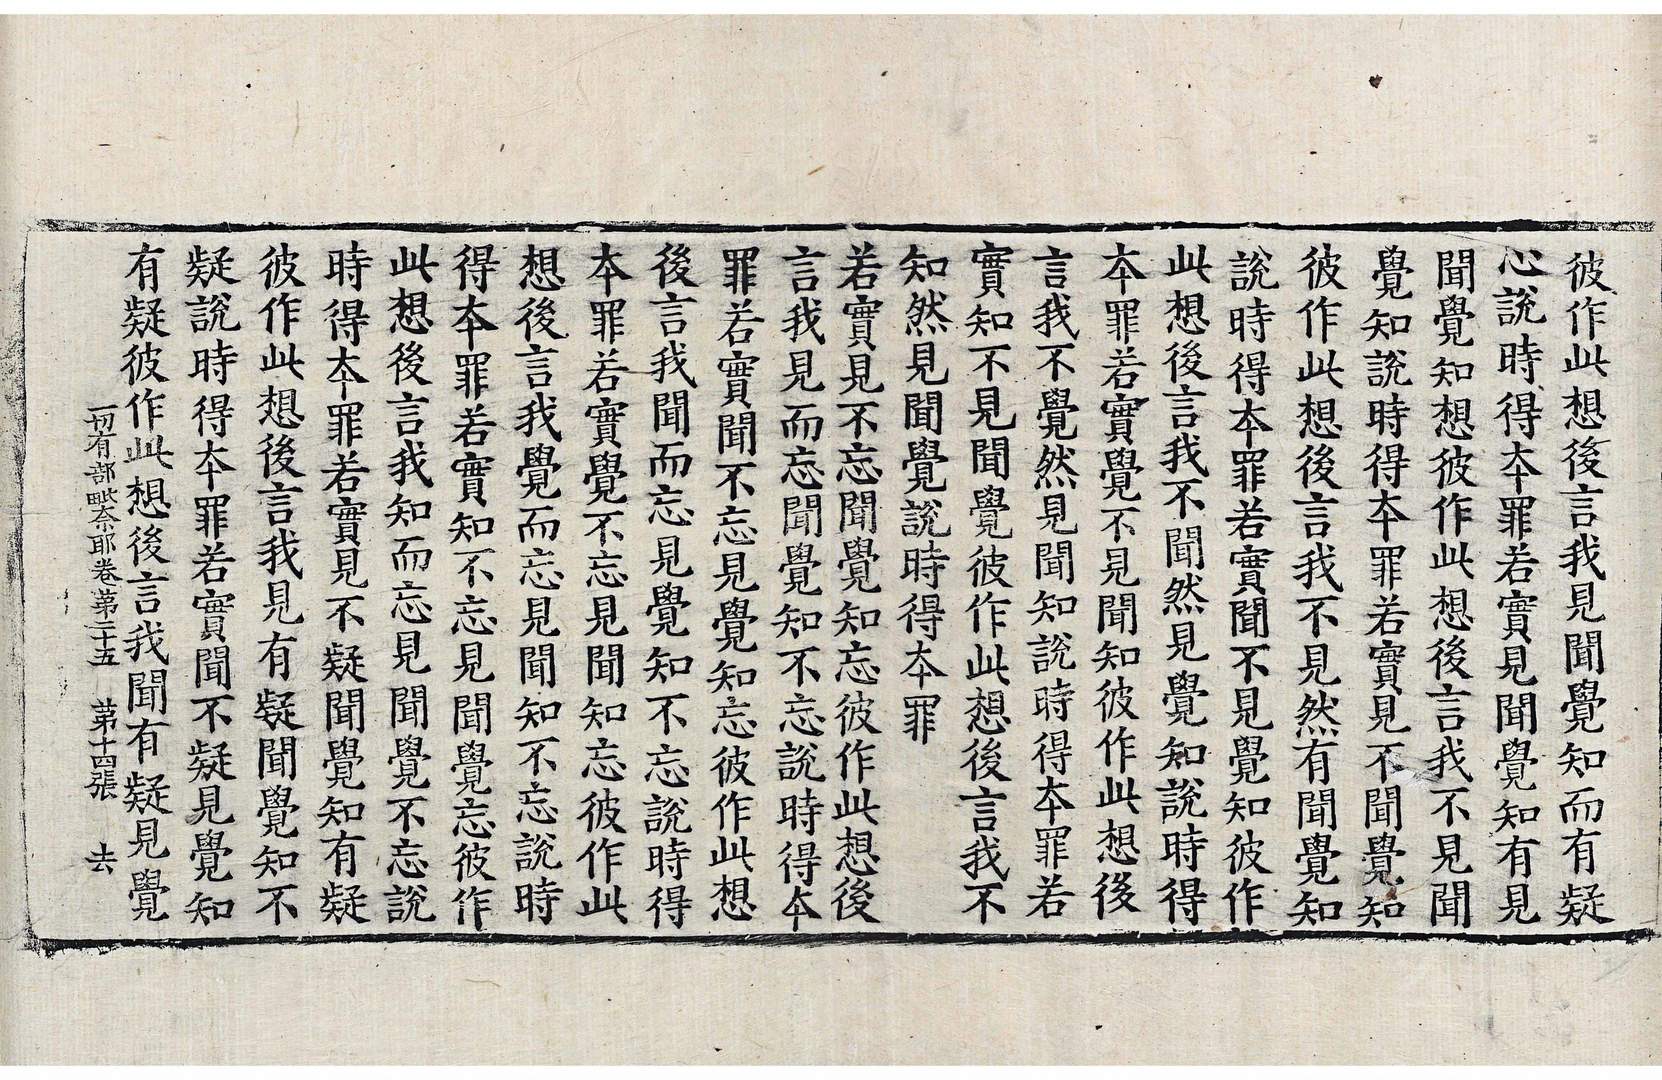 彼作此想後言我見聞覺知而有疑
心說時得夲罪若實見聞覺知有見
聞覺知想彼作此想後言我不見聞
覺知說時得夲罪若實見不聞覺知
彼作此想後言我不見然有聞覺知
說時得夲罪若實聞不見覺知彼作
此想後言我不聞然見覺知說時得
夲罪若實覺不見聞知彼作此想後
言我不覺然見聞知說時得夲罪若
實知不見聞覺彼作此想後言我不
知然見聞覺說時得夲罪
若實見不忘聞覺知忘彼作此想後
言我見而忘聞覺知不忘說時得夲
罪若實聞不忘見覺知忘彼作此想
後言我聞而忘見覺知不忘說時得
夲罪若實覺不忘見聞知忘彼作此
想後言我覺而忘見聞知不忘說時
得夲罪若實知不忘見聞覺忘彼作
此想後言我知而忘見聞覺不忘說
時得夲罪若實見不疑聞覺知有疑
彼作此想後言我見有疑聞覺知不
疑說時得夲罪若實聞不疑見覺知
有疑彼作此想後言我聞有疑見覺
一切有部毗奈耶卷第二十五 第十四張 去